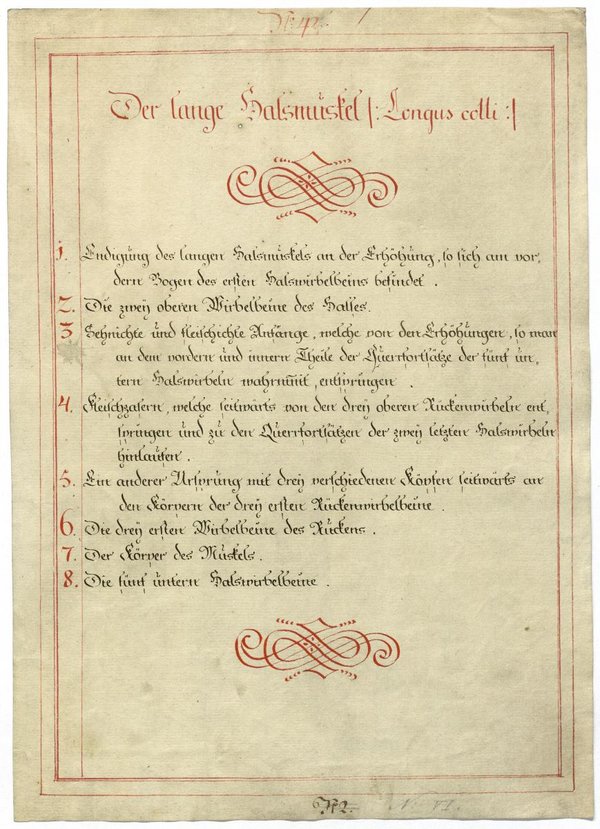 N: 42.
Der lange Halsmüskel /: Longus colli :/
1. Endigüng des langen Halsmüskels an der Erhöhüng, so sich am vor,
dern Bogen des ersten Halswirbelbeins befindet .
2. Die zweÿ oberen Wirbelbeine des Halses.
3 Sehnichte ünd fleischichte Anfänge, welche von den Erhöhüngen, so man
an dem vordern ünd innern Theile der Querrfortsätze der fünf ün,
tern Halswirbeln wahrnim̅t, entspringen .
4. Fleischzasern, welche seitwärts von den dreÿ oberen Rückenwirbeln ent,
springen ünd zü den Querrfortsätzen der zweÿ letzten Halswirbeln
hinlaüfen .
5. Ein anderer Ursprüng mit dreÿ verschiedenen Köpfen seitwärts an
den Körpern der dreÿ ersten Rückenwirbelbeine .
6. Die dreÿ ersten Wirbelbeine des Rückens .
7. Der Körper des Müskels .
8. Die fünf üntern Halswirbelbeine .
N. VI.